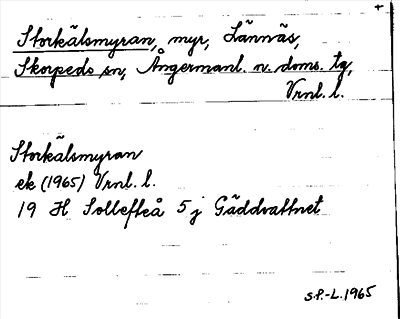 +
Storkälsmyran, myr, Lännäs,
Skorpeds sn, Ångermanl. n. doms. tg,
Vrnl. l.
Storkälsmyran
ek (1965) Vrnl. l.
19 H Sollefteå 5 j Gäddvattnet
S.P.-L. 1965